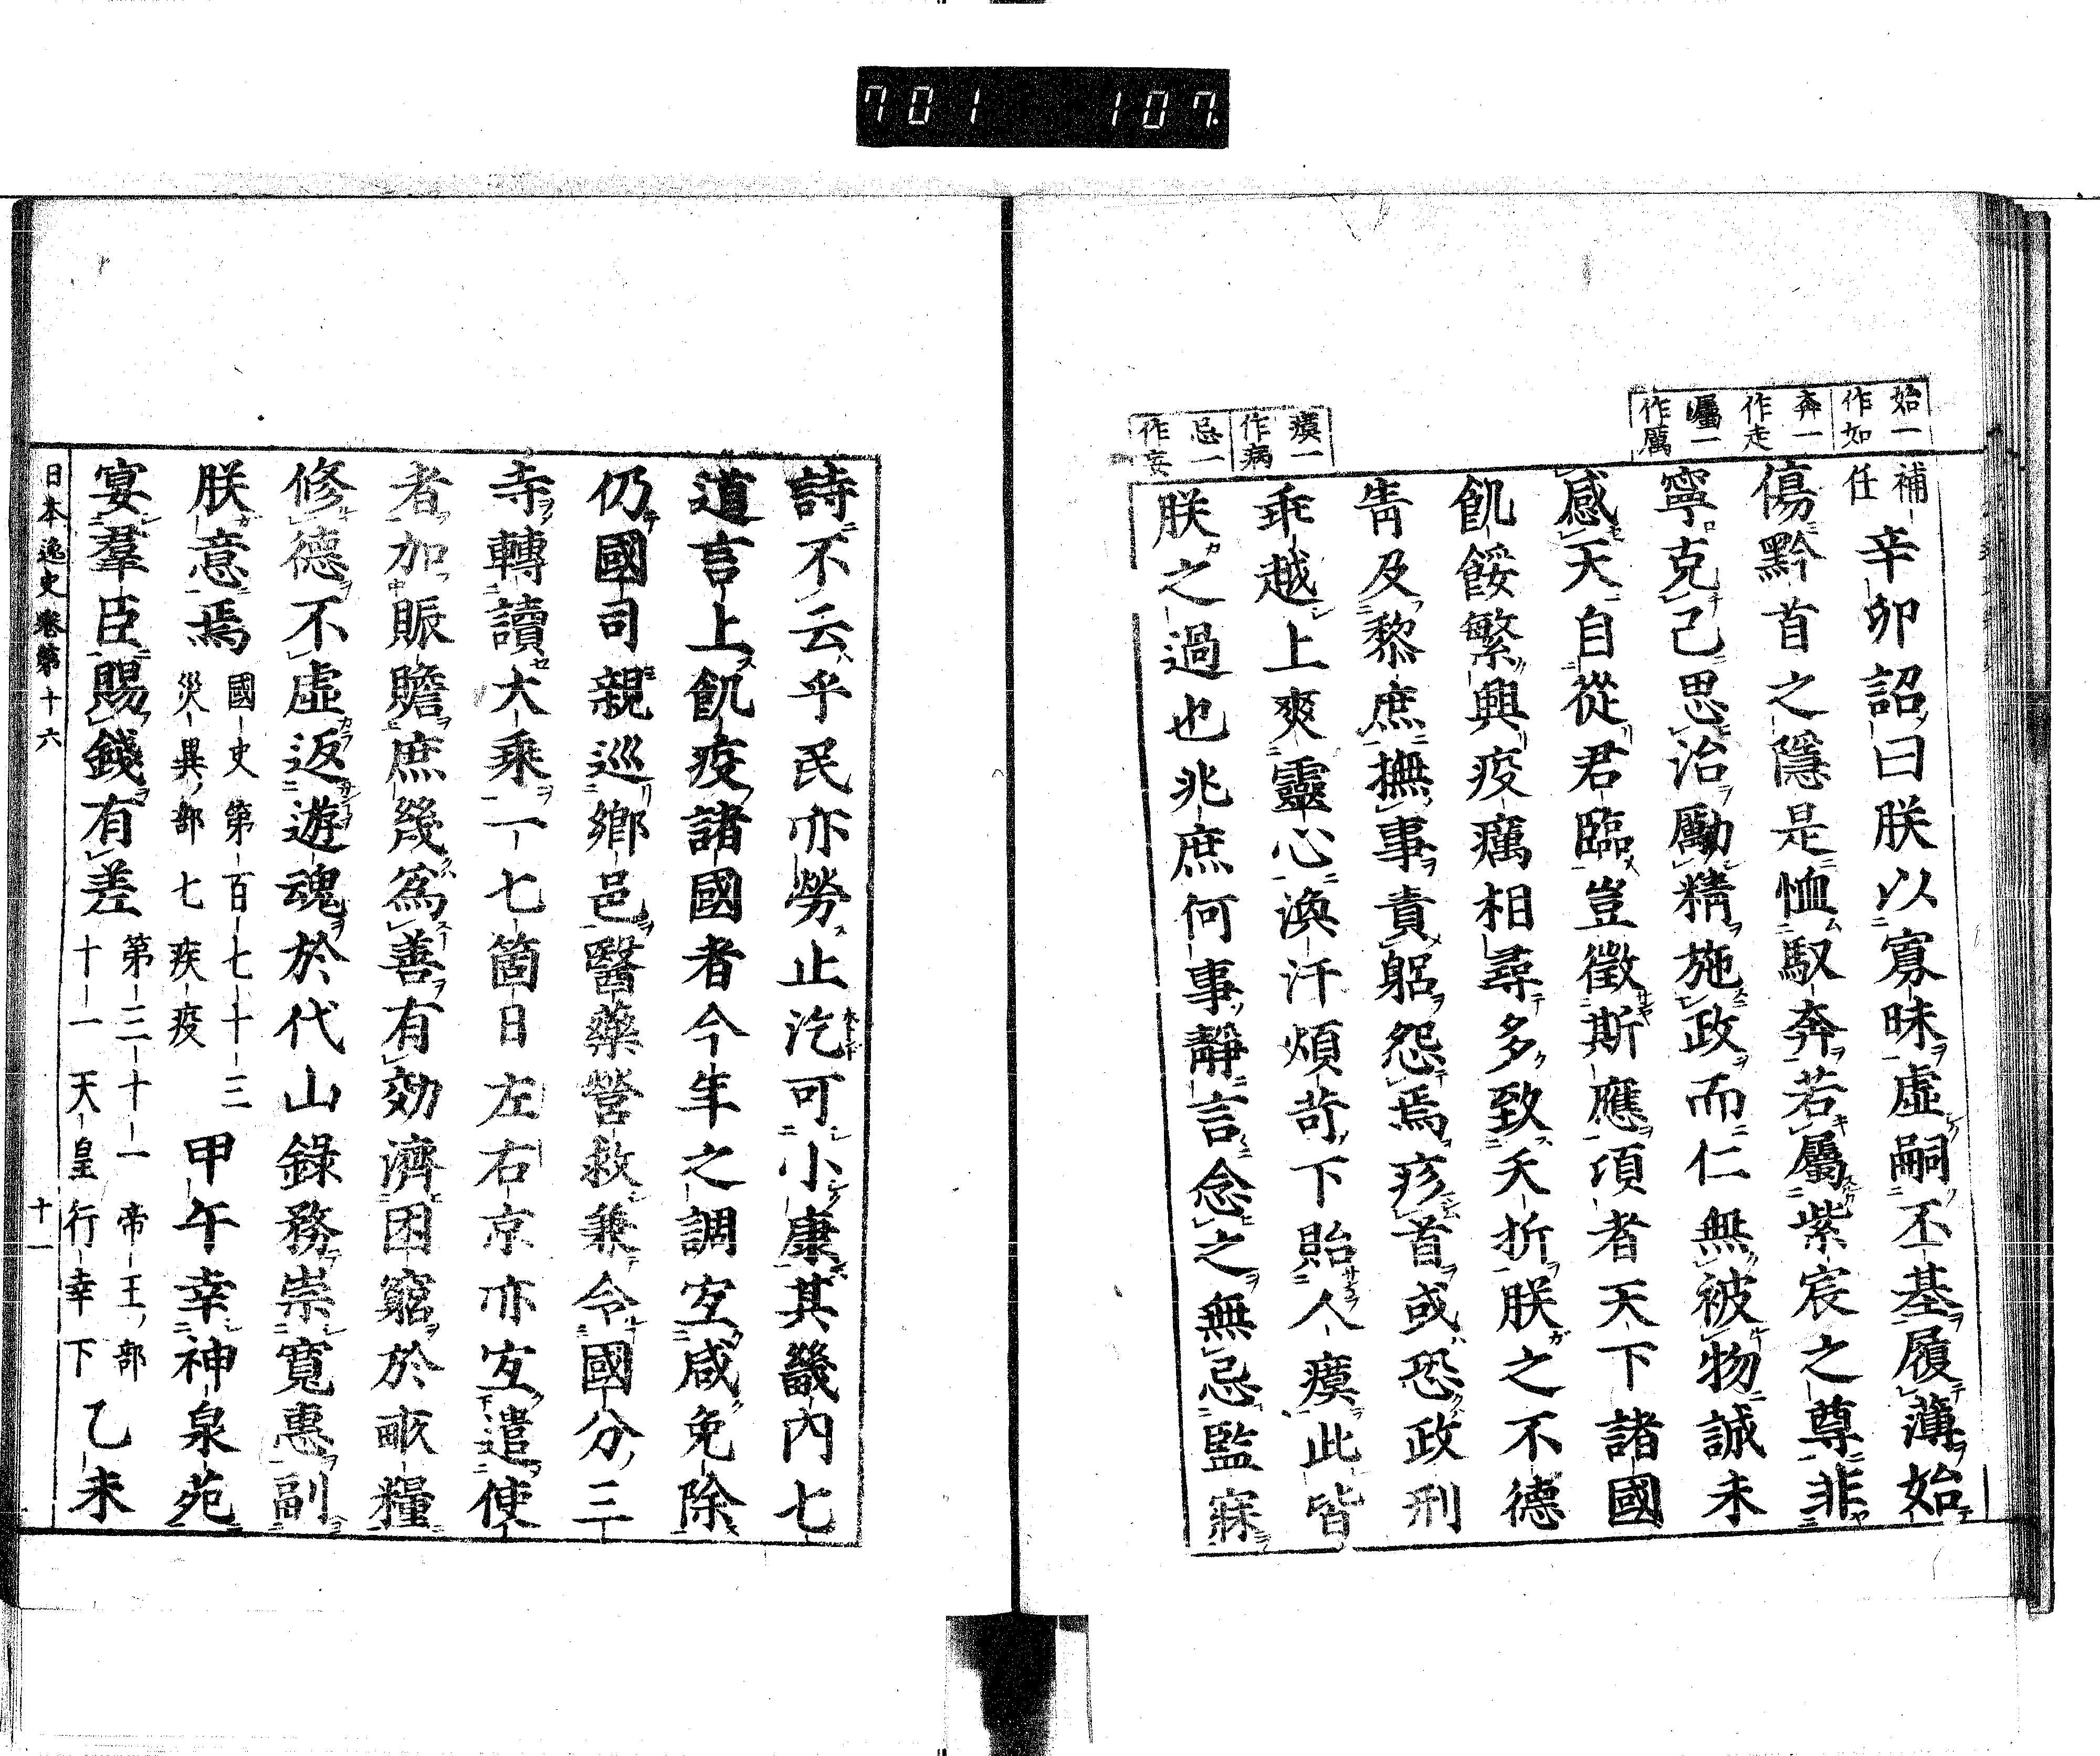 701 107.
始一
作如
奔一
作走
囑一
作厲
瘼一
作病
忌一
作妄
補
任
辛卯詔曰朕以寡昧虛嗣丕基履薄始
傷黔首之隱是恤馭奔若屬紫宸之尊非
寧克己思治勵精施政而仁無被物誠未
感天自從君臨豈徵斯應頃者天下諸國
飢餒繁興疫癘相尋多致夭折朕之不德
眚及黎庶撫事責躬怨焉疹首或恐政刑
乖越上爽靈心渙汗煩苛下貽人瘼此皆
朕之過也兆庶何事靜言念之無忌監寐
詩不云乎民亦勞止汔可小康其畿內七
道言上飢疫諸國者今年之調宜咸免除
仍國司親巡鄉邑醫藥營救兼令國分三
寺轉讀大乘一七箇日左右京亦宜遣使
者加賑贍庶幾為善有効濟困窮於畝糧
修德不虛返遊魂於代山錄務崇寬惠副
朕意焉
國史第百七十三
災異部七疾疫
甲午幸神泉苑
宴羣臣賜錢有差
第三十一帝王部
十一天皇行幸下
乙未
日本逸史卷第十六
十一